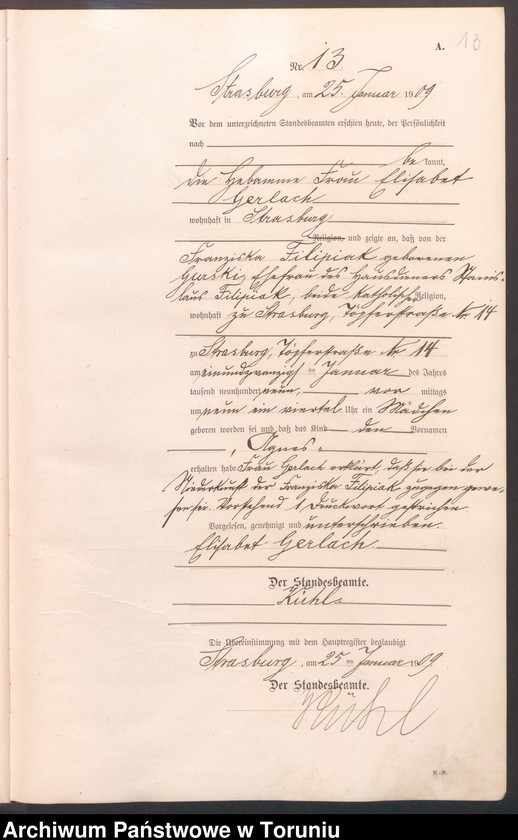 A. 13
Nr. 13
Strasburg, am 25. Januar 1909
Vor dem unterzeichneten Standesbeamten erschien heute, der Persönlichkeit
nach
be kannt,
die Hebamme Frau Elisabet
Gerlach
wohnhaft in Strasburg
Religion, und zeigte an, daß von der
Franziska Filipiak geborenen
Gurski, Ehefrau des Hausdieners Stanis-
laus Filipiak, beide katholischer Religion,
wohnhaft zu Strasburg, Töpferstraße Nr. 14
zu Strasburg, Töpferstraße Nr 14
am einundzwanzigsten Januar des Jahres
tausend neunhundert neun, vor mittags
um neun ein viertel Uhr ein Mädchen
geboren worden sei und daß das Kind den Vornamen
Agnes
erhalten habe. Frau Gerlach erklärt, daß sie bei der
Niederkunft der Franziska Filipiak zugegen gewe-
sen sei. Vorstehend 1 Druckwort gestrichen.
Vorgelesen, genehmigt und unterschrieben.
Elisabet Gerlach
Der Standesbeamte.
Kühl
Die Übereinstimmung mit dem Hauptregister beglaubigt
Strasburg, am 25 ten Januar 1909.
Der Standesbeamte.
Kühl
Archiwum Państwowe w Toruniu